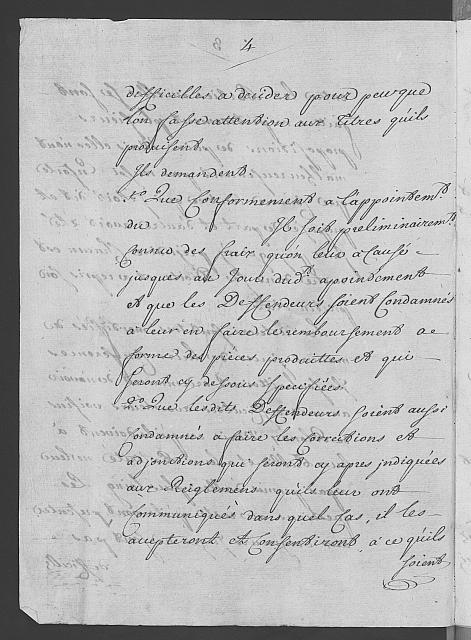 4
difficilles a decider pour peu que
l'on fasse attention aux Titres qu'ils
produisent
Ils demandent
1.o Que Conformement a l'appointem.t
du Il soit preliminairem.t
Connu des fraix qu'on leur a Causé
jusques au Jour dud.t apointement
et que les Deffendeurs soient Condamnés
a leur en faire le remboursement a
forme des pièces produittes et qui
seront cy dessous specifiées
2.o Que lesdits Deffendeurs soient aussi
Condamnés a faire les Corrections et
adjonctions qui seront cy apres indiquées
aux Reiglemens qu'ils leur ont
Communiqués dans quel Cas, il les
accepteront et Consentiront a ce qu'ils
soient